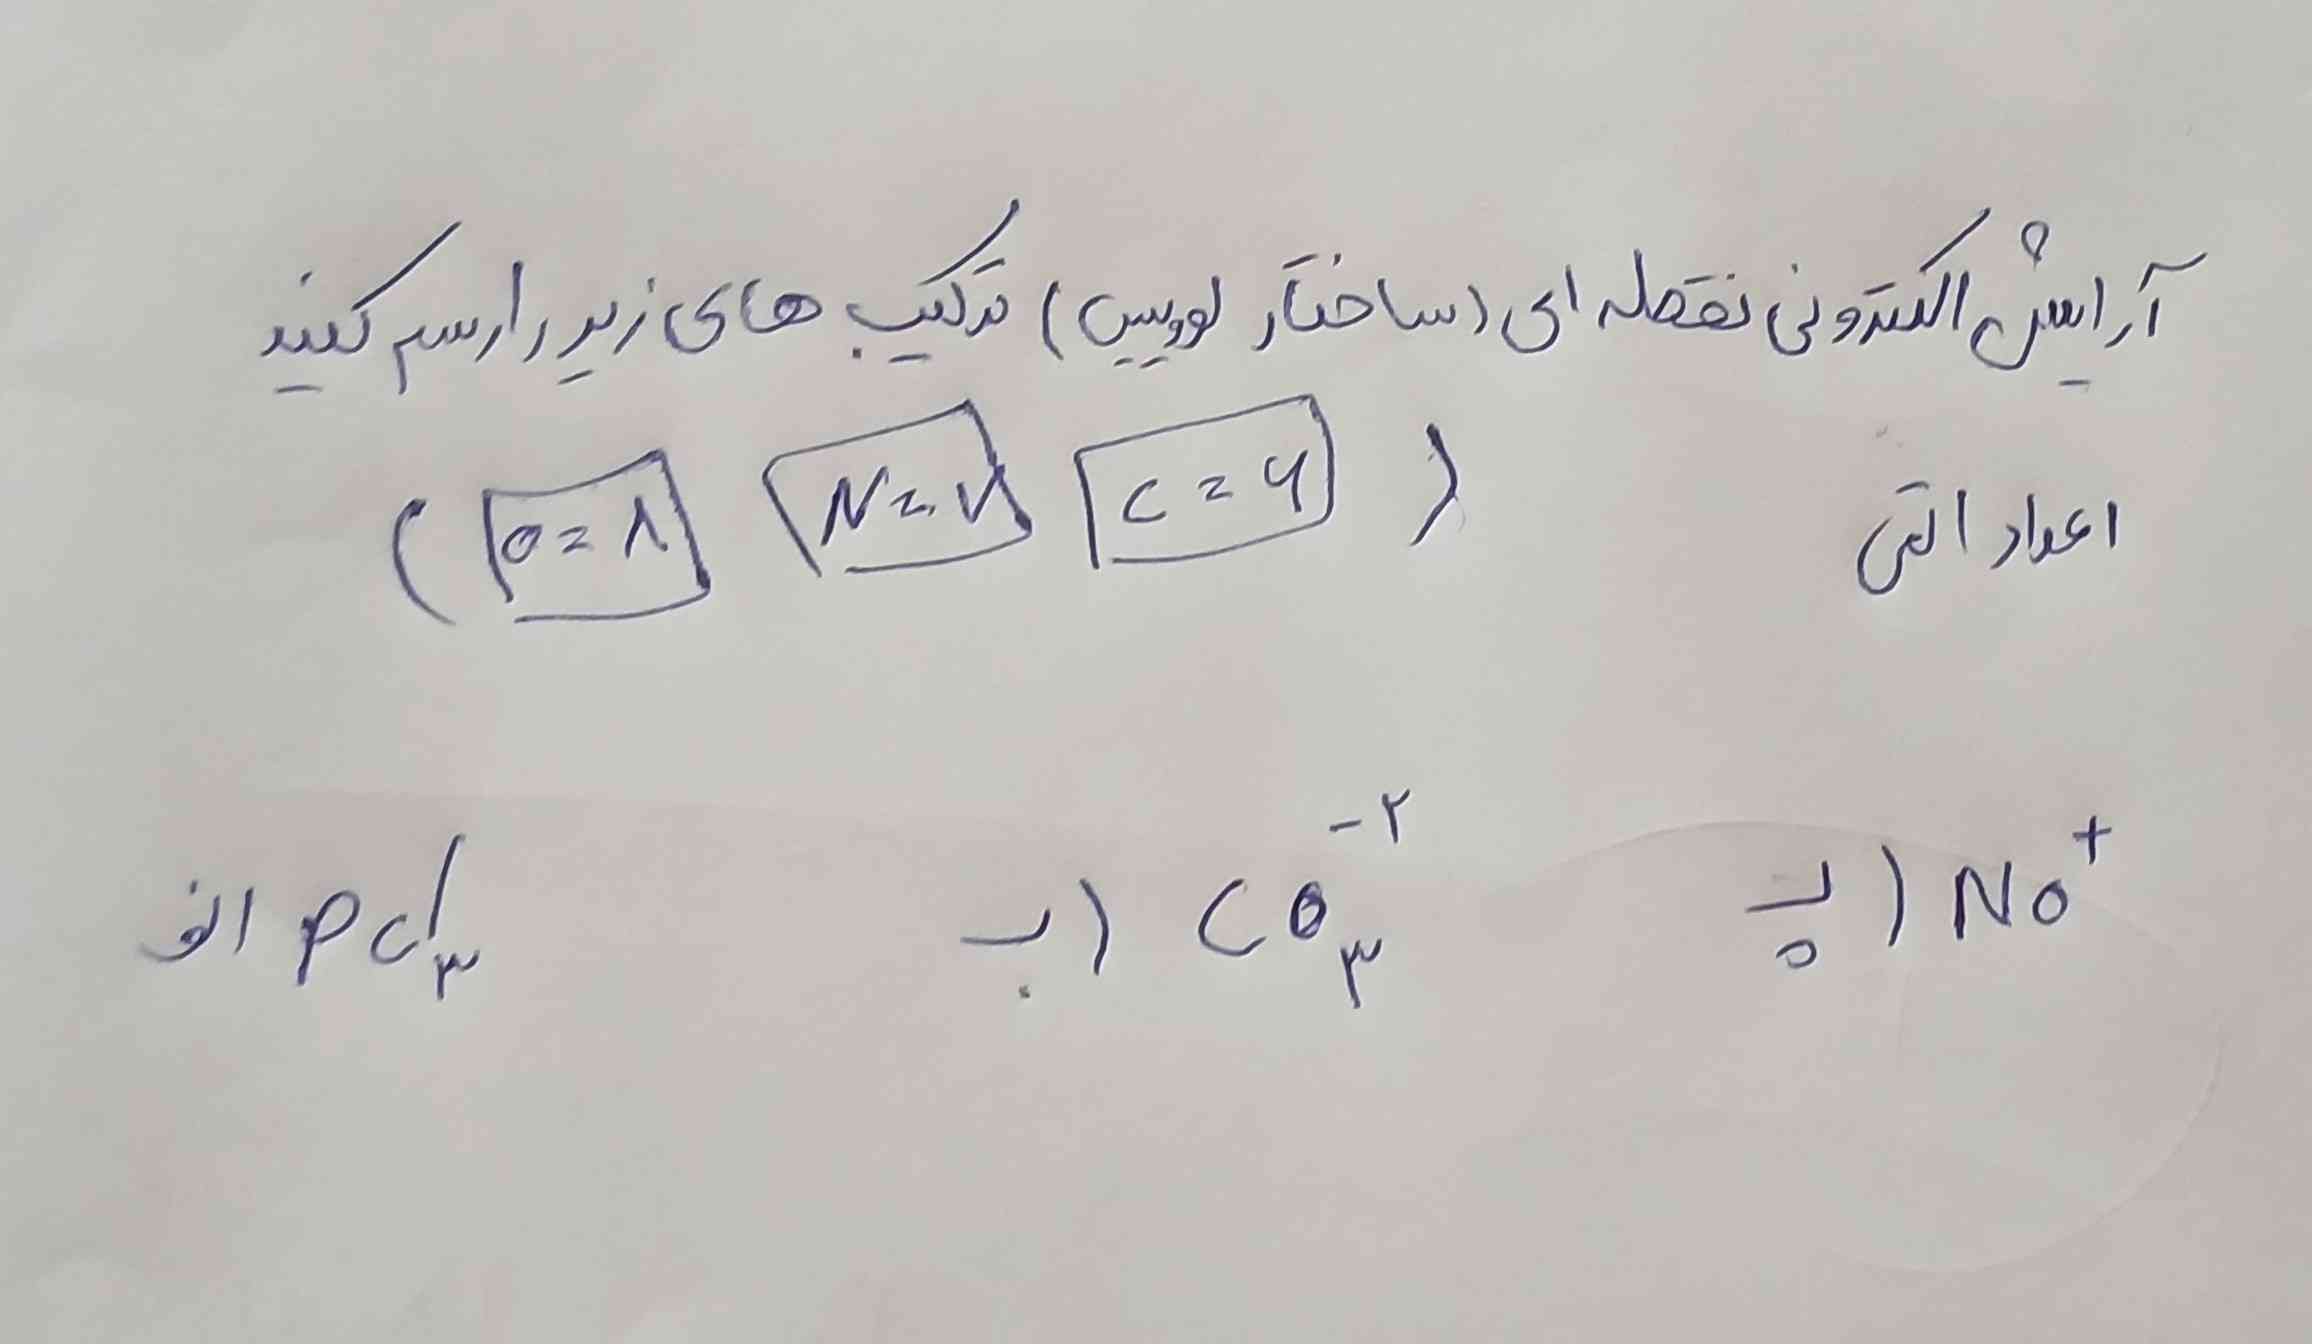 آرایش الکترونی نقطه ای (ساختار لوویس) ترکیب های زیر را رسم کنید
اعداد اتمی ( C = ۶ N = ۷ O = ۸ )
پ) NO⁺ ب) CO₃⁻² الف PCl₃